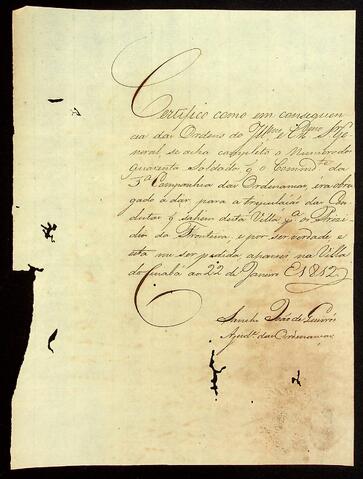 Certifico como em consequen
cia das Ordens do Illmo e Exmo Snr Ge
neral se acha completo o Numero de
quarenta Soldados q o Commdte da
3a Companhia das Ordenanças, era obri
gado a dar para a tripulação das Con
dutas q sahem desta Villa pa o Prezi
dio da Fronteira, e por ser verdade e
esta me ser pedida a passei na Villa
do Cuiabá ao 22 de Janeiro de 1812
João de Queiros
Ajudte das Ordenanças